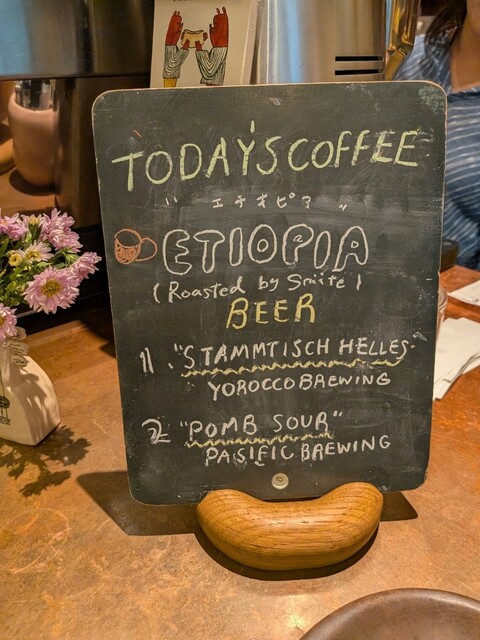 TODAY'S COFFEE
"エチオピア"
ETIOPIA
(Roasted by Sniite)
BEER
1. "STAMMTISCH HELLES"
YOROCCO BREWING
2 "POMB SOUR"
PASIFIC BREWING